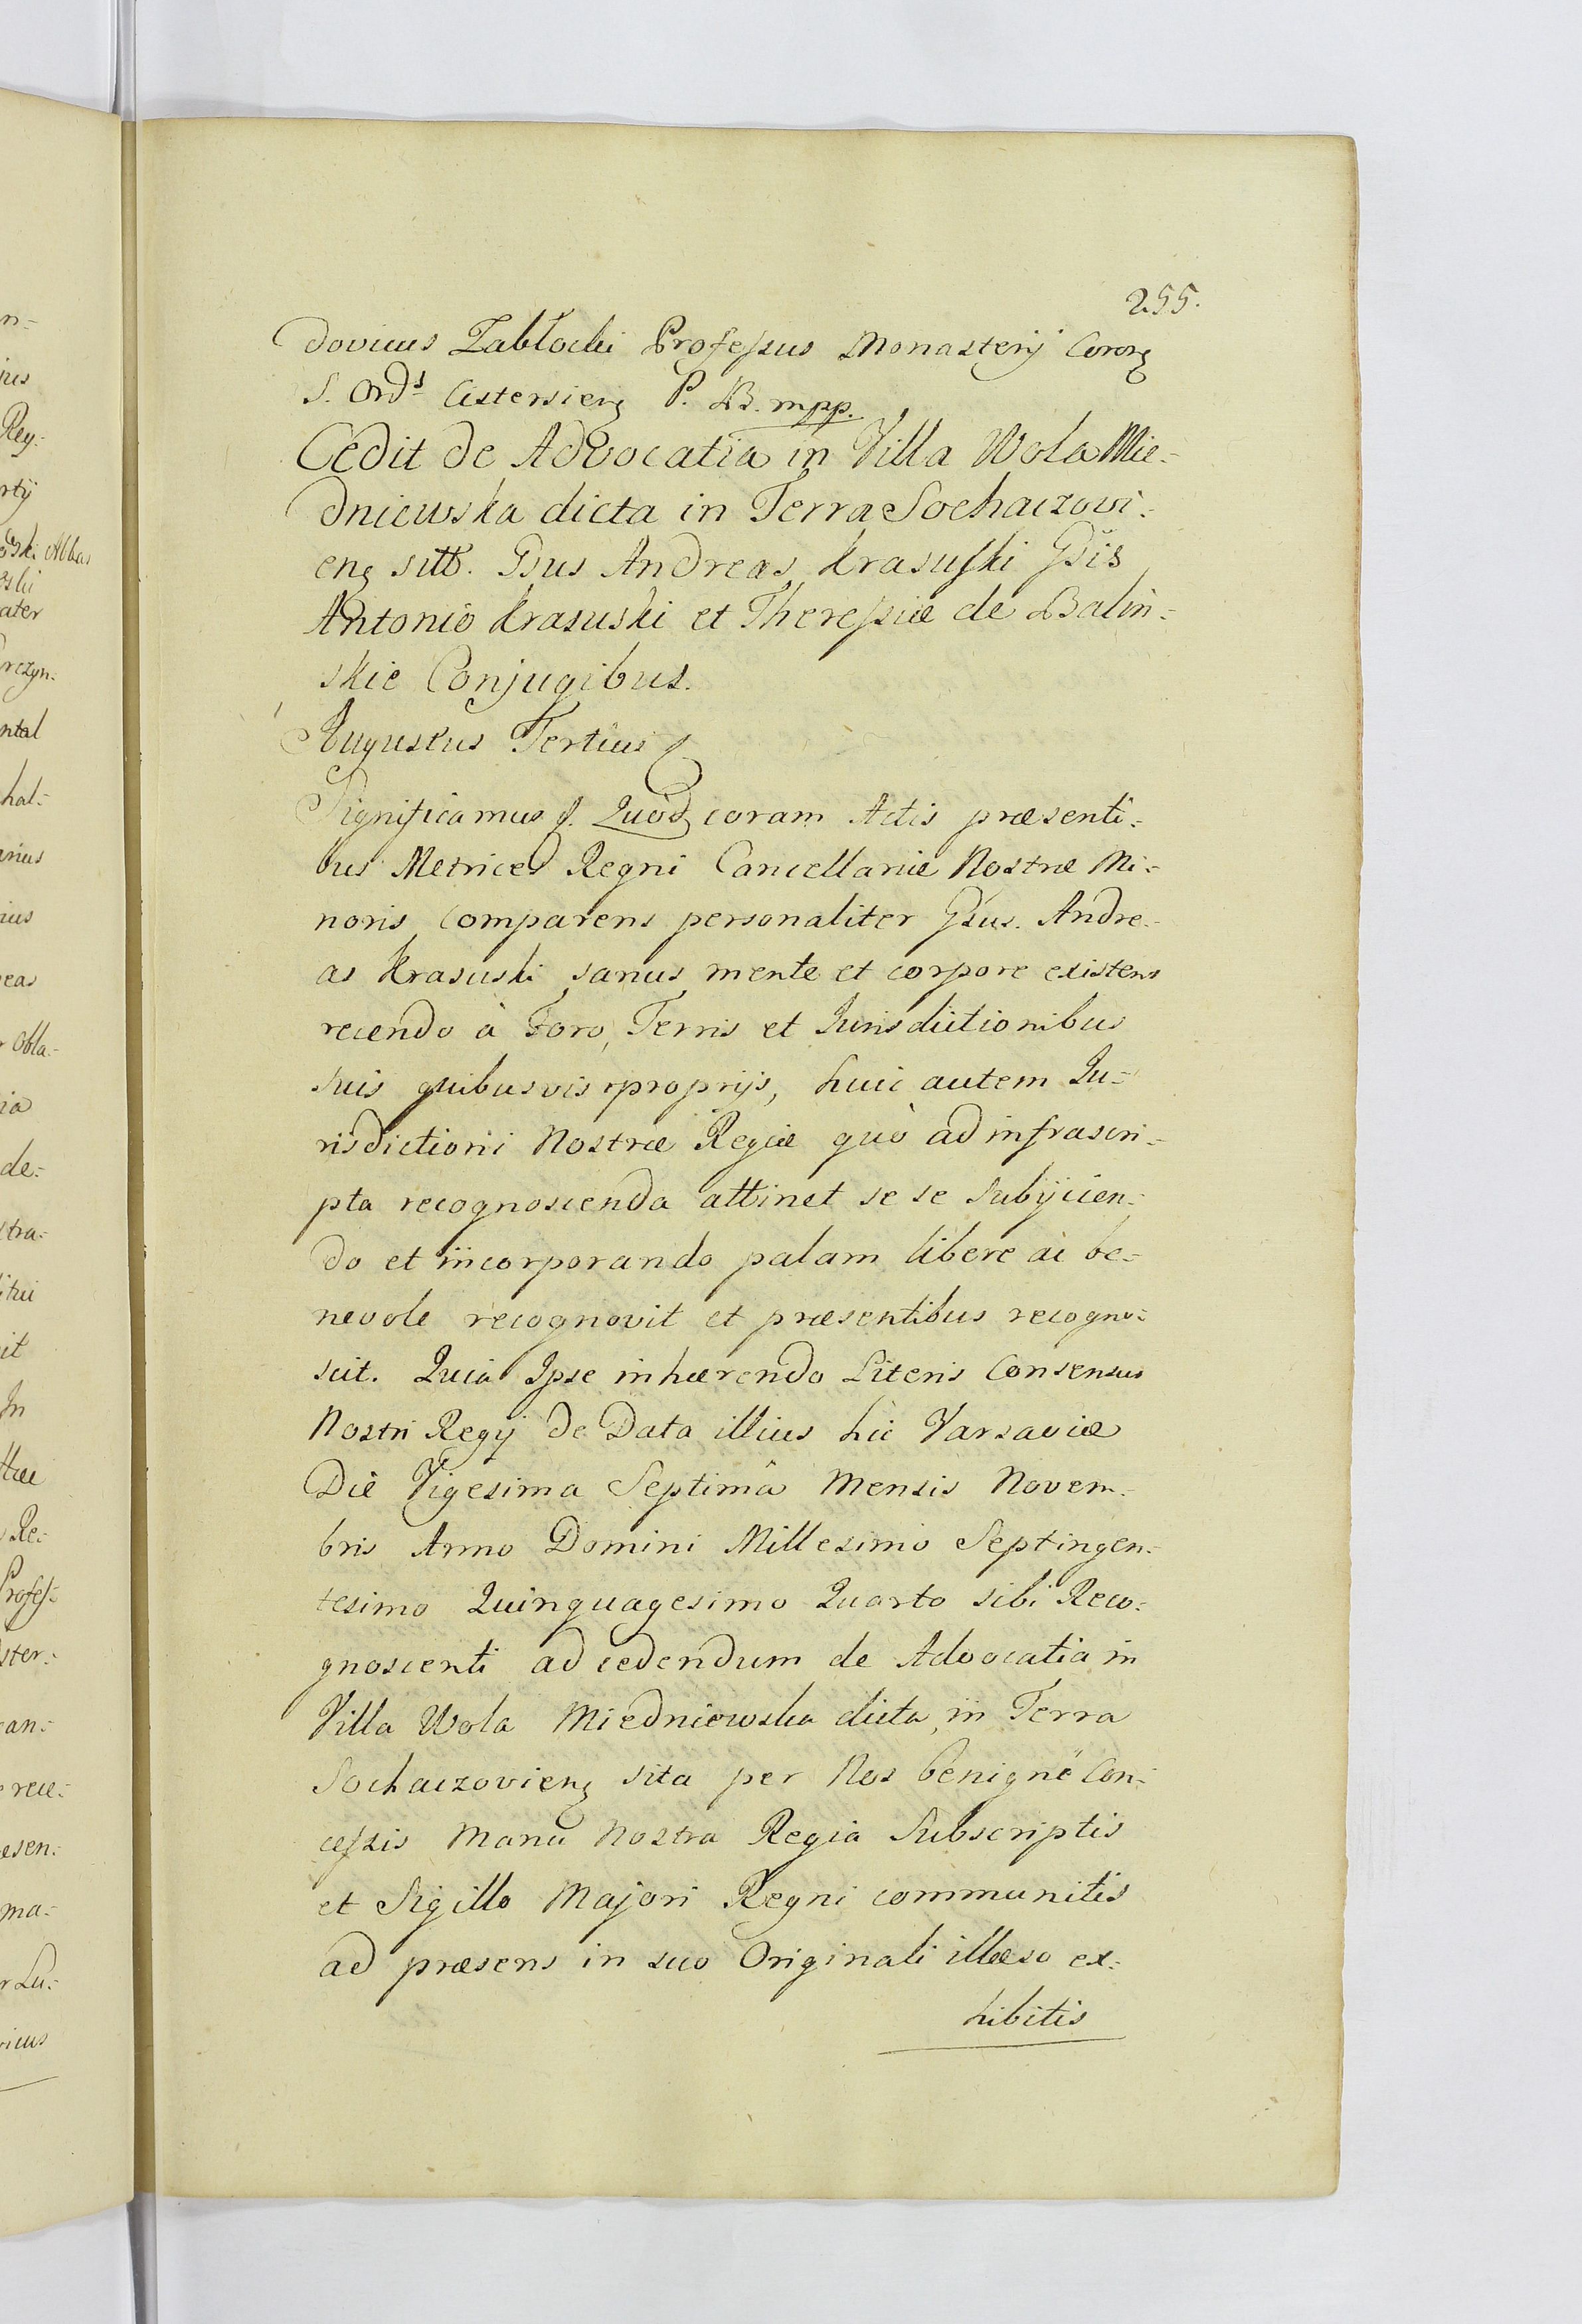 255.
dovicus Zabłocki Professus Monasterij Coron
S. Ords Cistersien P. B. mpp.
Cedit de Advocatia in Villa Wola Mie-
dniewska dicta in Terra Sochaczovi-
en sitt. Gsus Andreas Krasuski Gsis
Antonio Krasuski et Theressiæ de Balin-
skie Conjugibus.
Augustus Tertius
Significamus &. Quod coram Actis præsenti-
bus Metrices Regni Cancellariæ Nostræ Mi-
noris comparens personaliter Gsus. Andre-
as Krasuski sanus mente et corpore existens
recendo à Foro, Terris et Jurisdictionibus
suis quibusvis proprijs, huic autem Ju-
risdictioni Nostræ Regiæ quò ad infrascri-
pta recognoscenda attinet se se subijcien-
do et incorporando palam libere ac be-
nevole recognovit et præsentibus recogno-
scit. Quia Ipse inhærendo Literis Consensus
Nostri Regij de Data illius hic Varsaviæ
Die Vigesima Septimâ Mensis Novem-
bris Anno Domini Millesimo Septingen-
tesimo Quinquagesimo Quarto sibi Reco-
gnoscenti ad cedendum de Advocatia in
Villa Wola Miedniewska dicta in Terra
Sochaczovien sita per Nos benignè Con-
cessis Manu Nostra Regia Subscriptis
et Sigillo Majori Regni communitis
ad præsens in suo Originali illæso ex-
hibitis